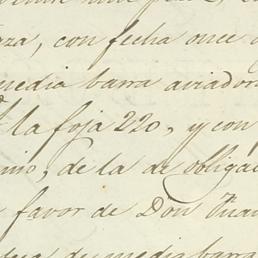 aza, con fecha once
media barra aviadora
la foja 220, y con
mio, de la de obliga
favor de Don Juan
de media barra